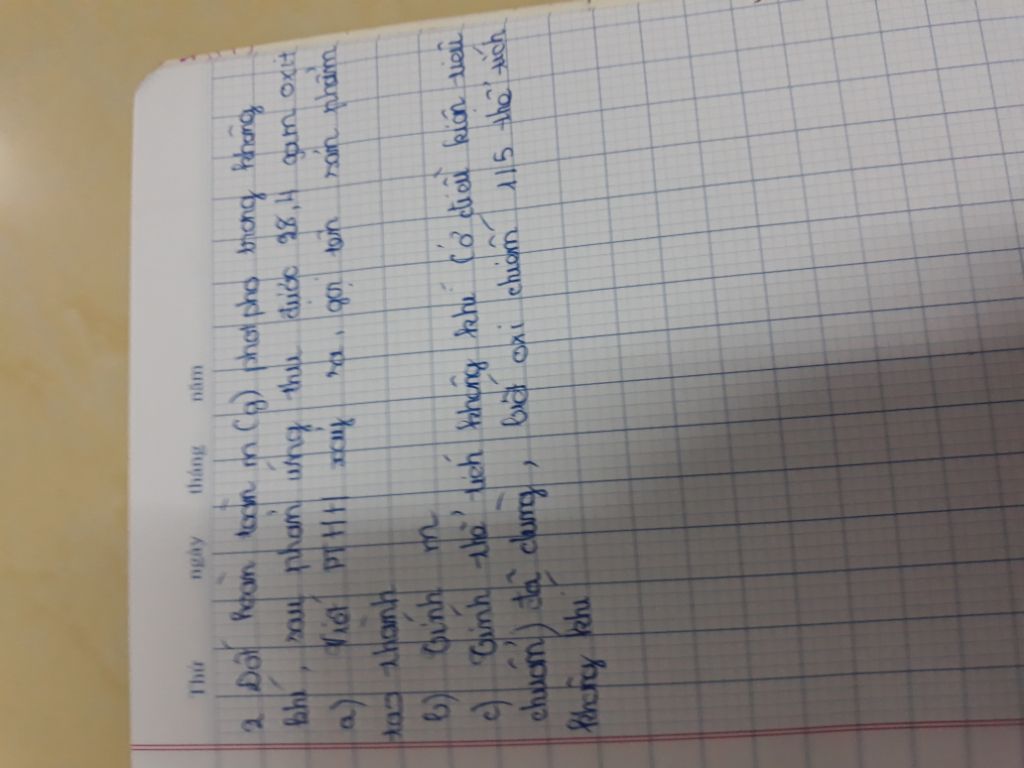 Thứ ngày tháng năm
2 Đốt hoàn toàn m (g) photpho trong không
khí, sau phản ứng thu được 28,4 gam oxit
a) Viết PTHH xảy ra, gọi tên sản phẩm
tạo thành
b) Tính m
c) Tính thể tích không khí (ở điều kiện tiêu
chuẩn) đã dùng, biết oxi chiếm 1/5 thể tích
không khí